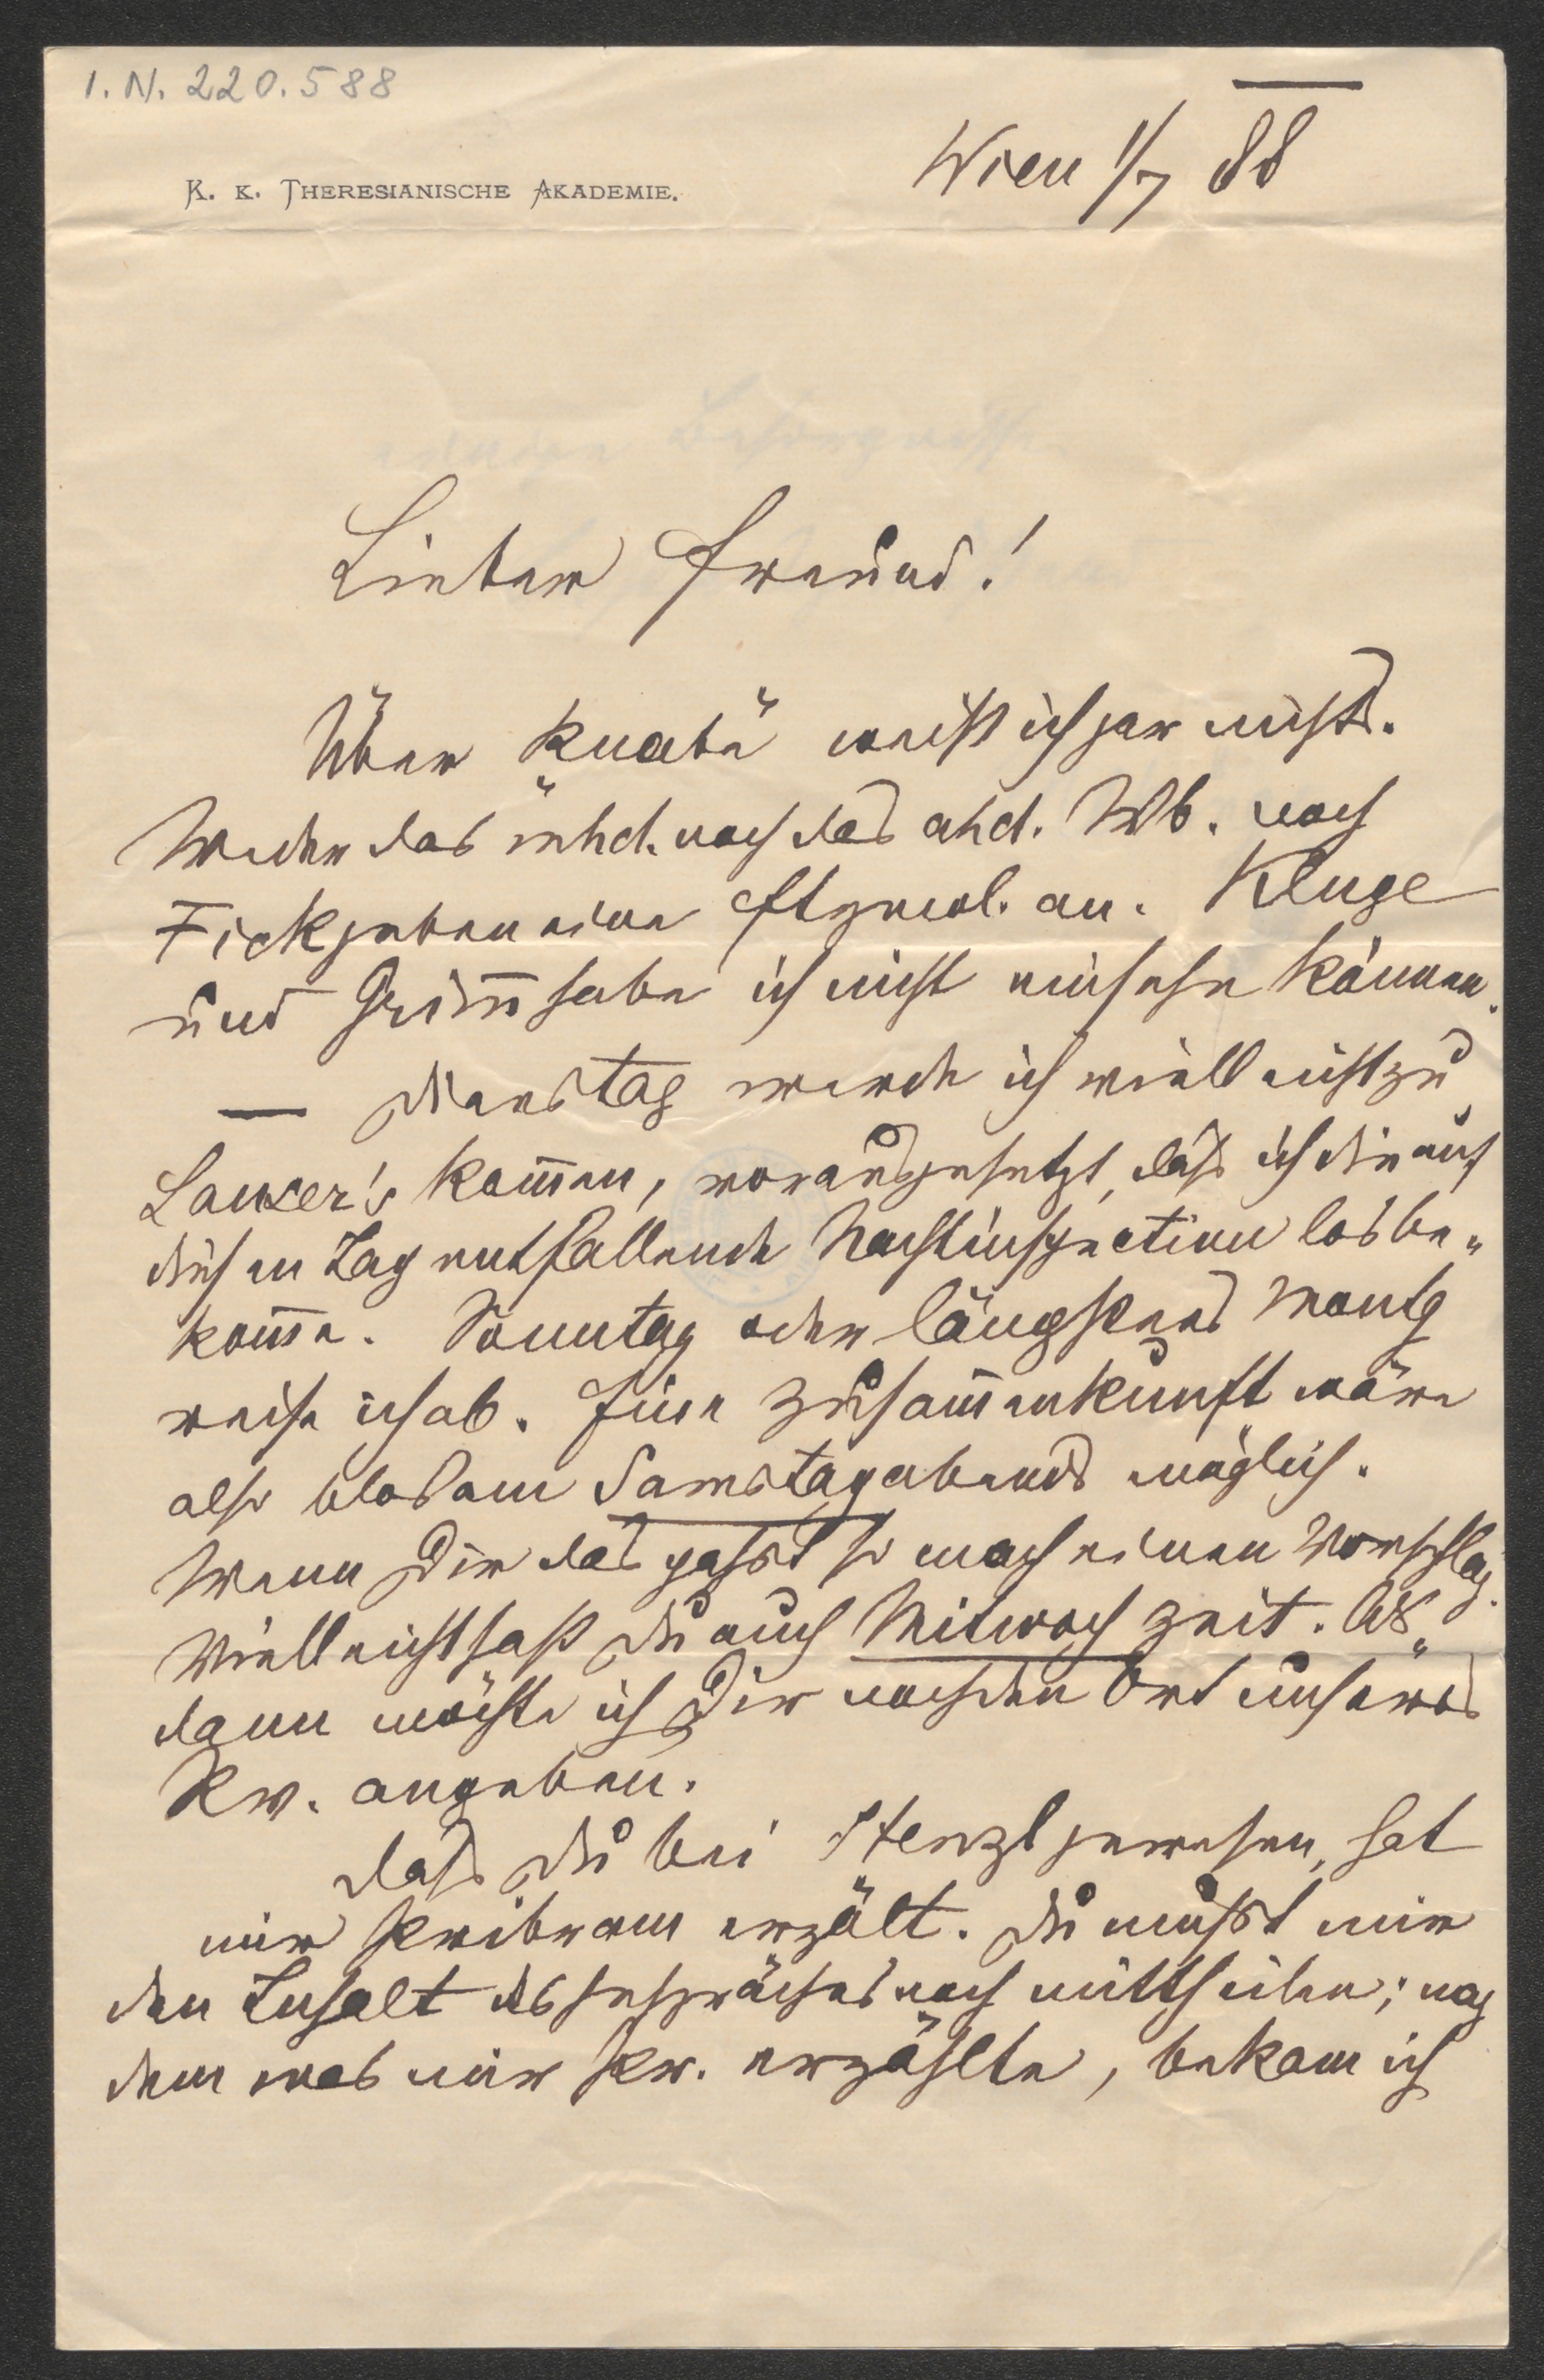 I. N. 220.588
Wien 1/7 88
K. K. THERESIANISCHE AKADEMIE.
Lieber Freund!
Über „Knabe“ weiß ich gar nichts.
Weder das mhd. noch das ahd. Wb. noch
Fick geben eine Etymol. an. Kluge
und Grim̅ habe ich nicht einsehn können.
— Dienstag werde ich vielleicht zu
Lanser's kom̅en, vorausgesetzt, dass ich die auf
diesen Tag entfallende Nachtinspection losbe-
kom̅e. Sonntag oder längstens Montg
reise ich ab. Eine Zusam̅enkunft wäre
also blos am Samstag abends möglich.
Wenn Dir das passt so mach einen Vorschlag.
Vielleicht hast Du auch Mitwoch Zeit. Als-
dann möchte ich Dir noch den Ort unseres
Rv. angeben.
Dass Du bei Stenzl gewesen, hat
mir Pribram erzält. Du musst mir
den Inhalt des Gespräches noch mittheilen; nach
dem was mir Pr. erzählte, bekam ich